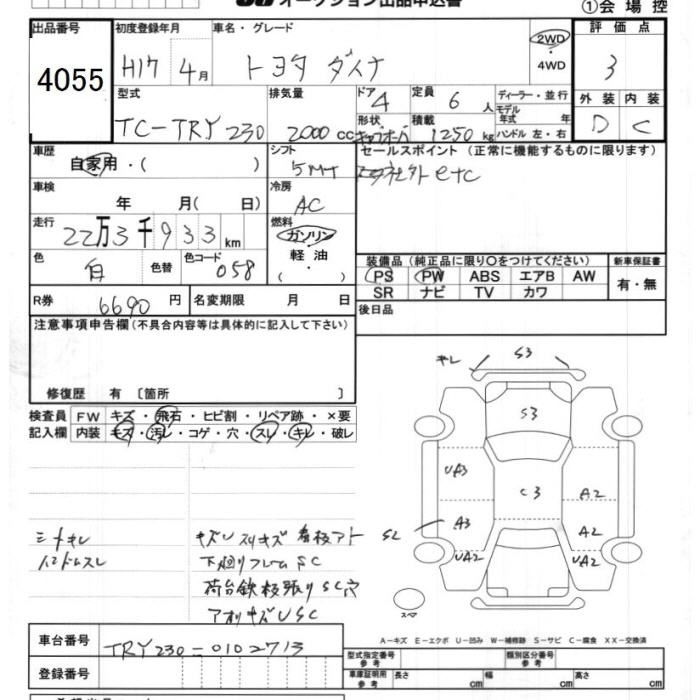 オークション出品申込書
①会場控
出品番号 初度登録年月 車名・グレード 評価点
4055 H17 4月 トヨタ ダイナ 2WD・4WD 3
型式 排気量 ドア 4 定員 6人 ディーラー・並行 外装 内装
TC-TRY230 2000cc 形状 積載 1250kg モデル年式 年 ハンドル 左・右 D C
車歴 シフト セールスポイント（正常に機能するものに限ります）
自家用・( ) 5MT
車検 冷房
年 月( 日) AC
走行 燃料
22万3千933km ガソリン
色 色替 色コード 軽油
白 058 ( ・ )
装備品（純正品に限り○をつけてください） 新車保証書
PS PW ABS エアB AW 有・無
SR ナビ TV カワ
R券 6690円 名変期限 月 日 後日品
注意事項申告欄(不具合内容等は具体的に記入して下さい)
修復歴 有〔箇所 〕
検査員 FW キズ・飛石・ヒビ割・リペア跡・×要
記入欄 内装 キズ・汚レ・コゲ・穴・スレ・キレ・破レ
キレ S3
S3
UA3
C3 A2
SL A3 A2
UA2 UA2
スペア
シートキレ
ハンドルスレ
キズU スリキズ 看板アト
下廻りフレームSC
荷台鉄板張りSC穴
アオリキズUSC
A-キズ E-エクボ U-凹み W-補修跡 S-サビ C-腐食 XX-交換済
車台番号 TRY230-0102713
型式指定番号 参考 類別区分番号 参考
登録番号 車庫証明用 参考 長さ cm 幅 cm 高さ cm